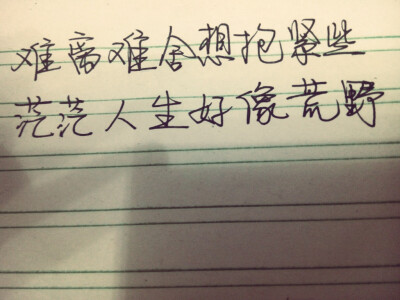 难离难舍想抱紧些
茫茫人生好像荒野